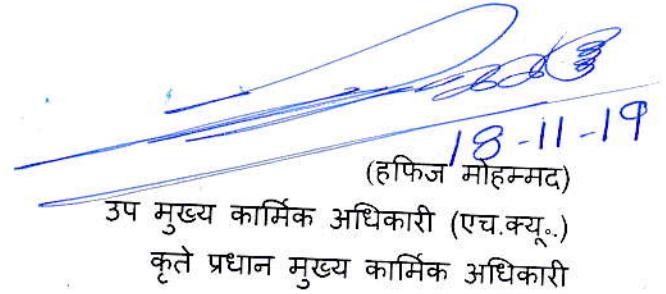 18-11-19
(हफिज मोहम्मद)
उप मुख्य कार्मिक अधिकारी (एच.क्यू..)
कृते प्रधान मुख्य कार्मिक अधिकारी